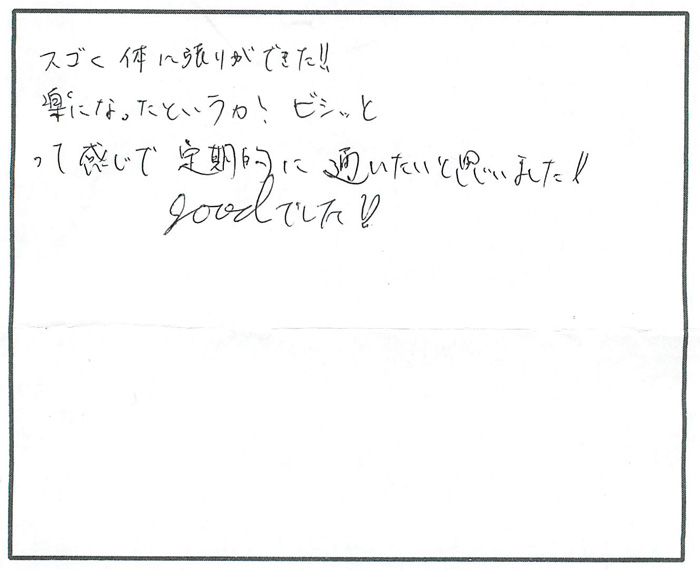 スゴく体に張りができた!!
楽になったというか! ビシッと
って感じで定期的に通いたいと思いました!
goodでした!!